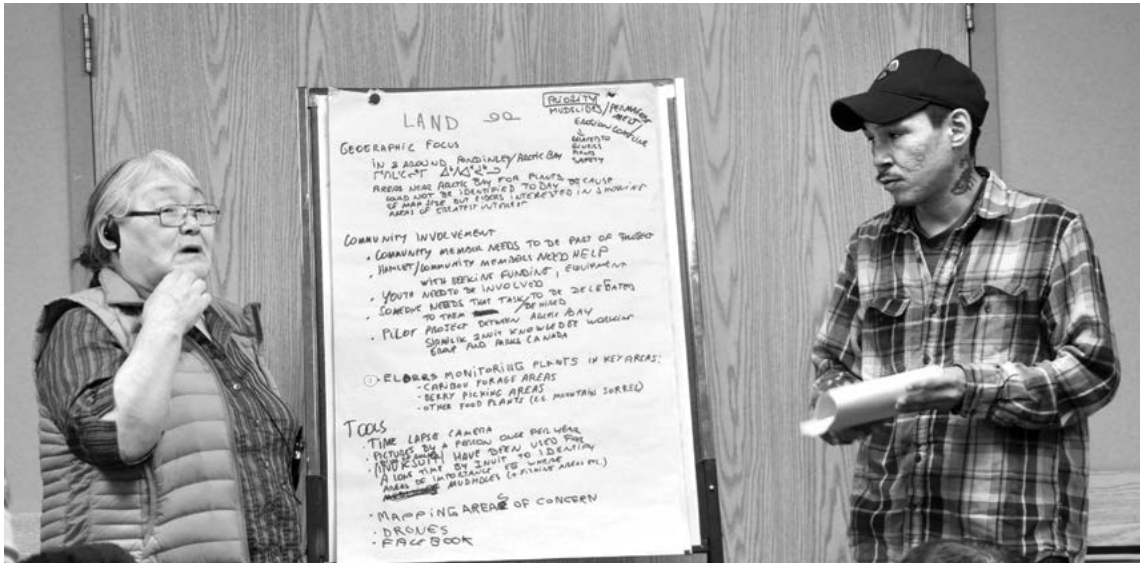 LAND
PRIORITY
MUDSLIDES/PERMAFROST MELT/
EROSION/COASTLINE
RELATED TO
RIVERS
PLANTS
SAFETY
GEOGRAPHIC FOCUS
IN & AROUND POND INLET/ARCTIC BAY
AREAS NEAR ARCTIC BAY FOR PLANTS
COULD NOT BE IDENTIFIED TODAY BECAUSE
OF MAP SIZE BUT ELDERS INTERESTED IN SHOWING
AREAS OF GREATEST INTEREST
COMMUNITY INVOLVEMENT
• COMMUNITY MEMBER NEEDS TO BE PART OF PROJECT
• HAMLET/COMMUNITY MEMBERS NEED HELP
WITH SEEKING FUNDING, EQUIPMENT
• YOUTH NEED TO BE INVOLVED
• SOMEONE NEEDS THAT TASK TO BE DELEGATED
TO THEM / BE HIRED
• PILOT PROJECT BETWEEN ARCTIC BAY
SIRMILIK INUIT KNOWLEDGE WORKING
GROUP AND PARKS CANADA
• ELDERS MONITORING PLANTS IN KEY AREAS:
- CARIBOU FORAGE AREAS
- BERRY PICKING AREAS
- OTHER FOOD PLANTS (I.E. MOUNTAIN SORREL)
TOOLS
• TIME LAPSE CAMERA
• PICTURES BY A PERSON ONCE PER YEAR
• INUKSUIT HAVE BEEN USED FOR
A LONG TIME BY INUIT TO IDENTIFY
AREAS OF IMPORTANCE EG WHERE
MUDHOLES (+ FISHING AREAS ETC.)
• MAPPING AREAS OF CONCERN
• DRONES
• FACEBOOK